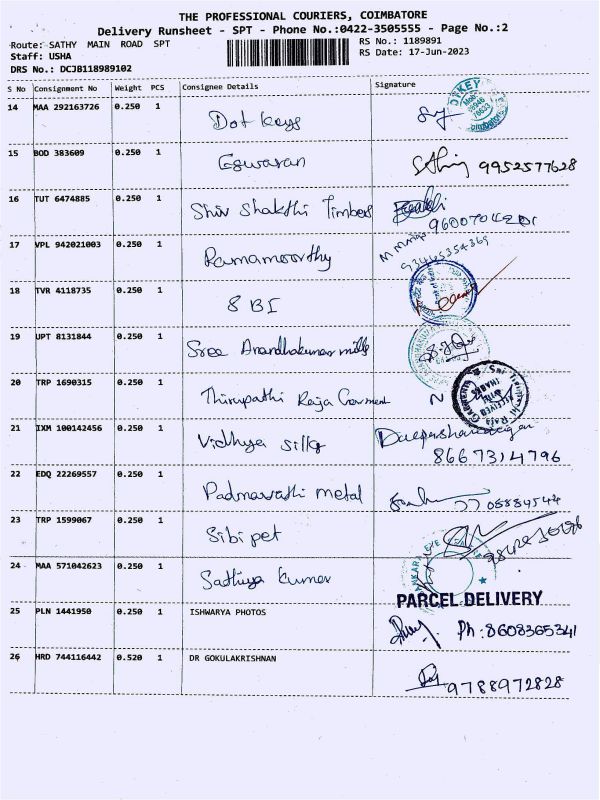 THE PROFESSIONAL COURIERS, COIMBATORE
Delivery Runsheet - SPT - Phone No.:0422-3505555 - Page No.:2
Route: SATHY MAIN ROAD SPT
RS No.: 1189891
Staff: USHA
RS Date: 17-Jun-2023
DRS No.: DCJB118989102
S No Consignment No Weight PCS Consignee Details Signature
14 MAA 292163726 0.250 1 Dot keys
15 BOD 383609 0.250 1 Eswaran 9952577628
16 TUT 6474885 0.250 1 Shiv Shakthi Timbers
17 VPL 942021003 0.250 1 Ramamoorthy
18 TVR 4118735 0.250 1 SBI
19 UPT 8131844 0.250 1 Sree Anandhakumar mills
20 TRP 1690315 0.250 1 Thirupathi Raja Garment
21 IXM 100142456 0.250 1 Vidhya silks
8667314796
22 EDQ 22269557 0.250 1 Padmavathi metal
23 TRP 1599067 0.250 1 Sibi pet
24 MAA 571042623 0.250 1 Sathiya kumar
PARCEL DELIVERY
25 PLN 1441950 0.250 1 ISHWARYA PHOTOS
Ph:8608365341
26 HRD 744116442 0.520 1 DR GOKULAKRISHNAN
9788972828